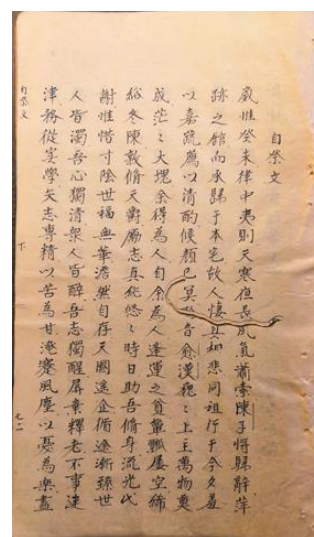 自祭文
歲惟癸未律中夷則天寒夜長風氣蕭索陳子將歸辭萍
跡之館而永歸于本宅故人悽其相悲同祖行于今夕羞
以嘉蔬薦以清酌候顏已冥音愈漠巍ミ上主萬物奠
成茫ミ大塊余得為人自余為人逢運之貧簞瓢屢空絺
綌冬陳敦脩天爵勵志真純悠ミ時日助吾脩身流光代
謝惟惜寸陰世福無華澹然自存天國遙企循途漸臻世
人皆濁吾心獨清衆人皆醉吾志獨醒屏棄釋老不事迷
津務從实學矢志專精以苦為甘淹蹇風塵以憂為樂盡
自祭文 下 七二